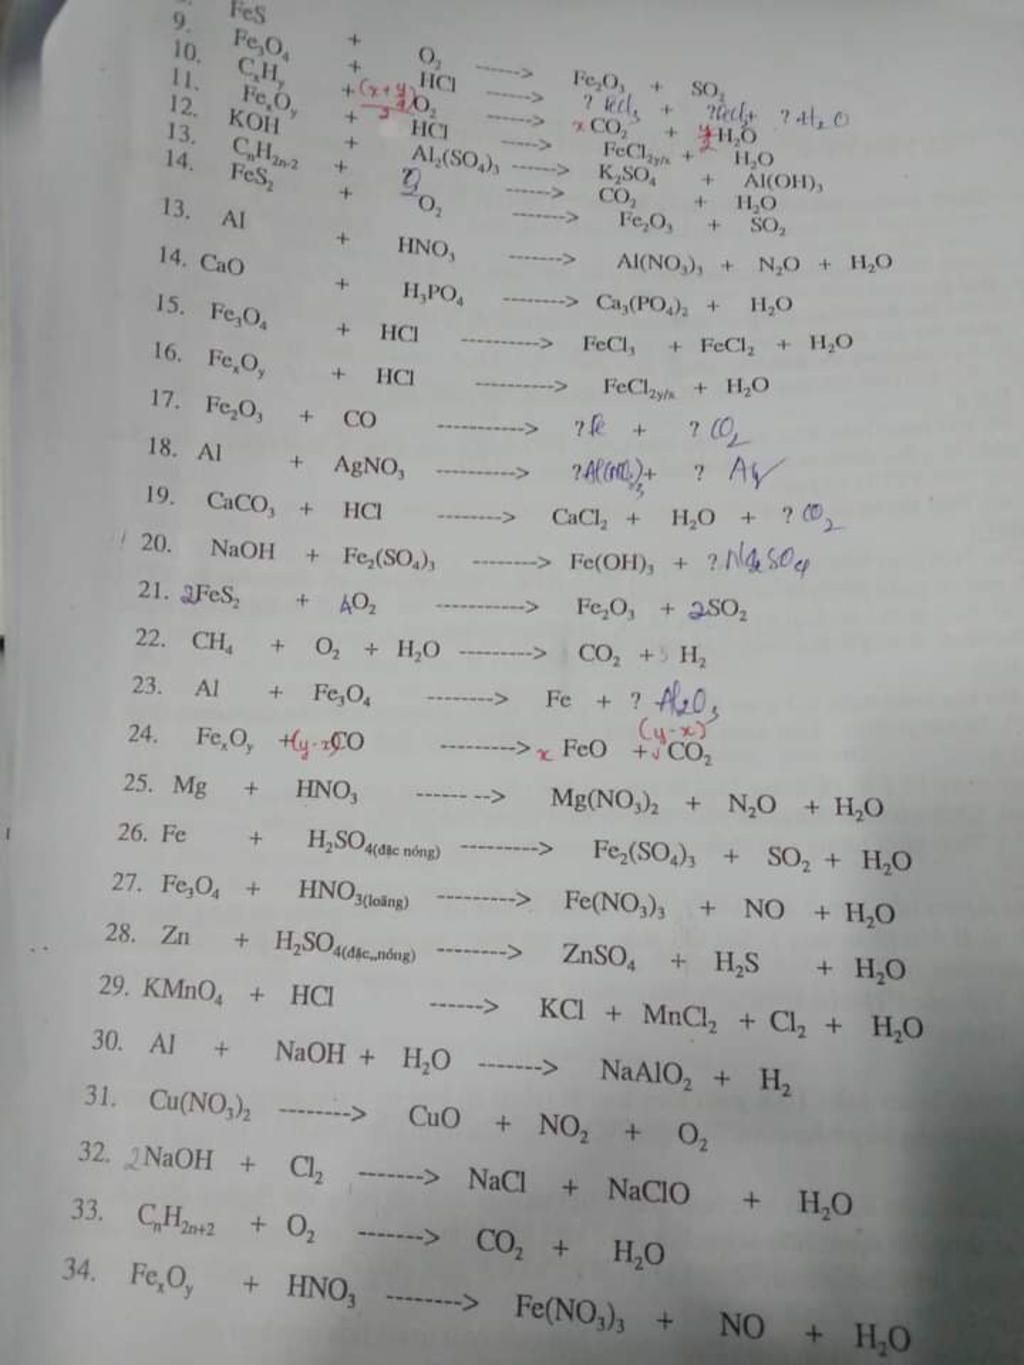 FeS + O₂ -----> Fe₂O₃ + SO₂
9. Fe₃O₄ + HCl -----> ? FeCl₃ + ? FeCl₂ + ? H₂O
10. CₓHᵧ + (x+y/4)O₂ -----> x CO₂ + y/2 H₂O
11. FeₓOᵧ + HCl -----> FeCl₂ᵧ/ₓ + H₂O
12. KOH + Al₂(SO₄)₃ ------> K₂SO₄ + Al(OH)₃
13. CₙH₂ₙ₋₂ + O₂ ------> CO₂ + H₂O
14. FeS₂ + O₂ ------> Fe₂O₃ + SO₂
13. Al + HNO₃ -------> Al(NO₃)₃ + N₂O + H₂O
14. CaO + H₃PO₄ --------> Ca₃(PO₄)₂ + H₂O
15. Fe₃O₄ + HCl ----------> FeCl₃ + FeCl₂ + H₂O
16. FeₓOᵧ + HCl ----------> FeCl₂ᵧ/ₓ + H₂O
17. Fe₂O₃ + CO -----------> ? Fe + ? CO₂
18. Al + AgNO₃ ----------> ? Al(NO₃)₃ + ? Ag
19. CaCO₃ + HCl --------> CaCl₂ + H₂O + ? CO₂
20. NaOH + Fe₂(SO₄)₃ --------> Fe(OH)₃ + ? Na₂SO₄
21. 2FeS₂ + 4O₂ -----------> Fe₂O₃ + 2SO₂
22. CH₄ + O₂ + H₂O ----------> CO₂ + H₂
23. Al + Fe₃O₄ --------> Fe + ? Al₂O₃
24. FeₓOᵧ + (y-x)CO ----------> x FeO + (y-x) CO₂
25. Mg + HNO₃ ------ --> Mg(NO₃)₂ + N₂O + H₂O
26. Fe + H₂SO₄(đặc nóng) ----------> Fe₂(SO₄)₃ + SO₂ + H₂O
27. Fe₃O₄ + HNO₃(loãng) ----------> Fe(NO₃)₃ + NO + H₂O
28. Zn + H₂SO₄(đặc,,nóng) --------> ZnSO₄ + H₂S + H₂O
29. KMnO₄ + HCl ------> KCl + MnCl₂ + Cl₂ + H₂O
30. Al + NaOH + H₂O -------> NaAlO₂ + H₂
31. Cu(NO₃)₂ --------> CuO + NO₂ + O₂
32. 2NaOH + Cl₂ -------> NaCl + NaClO + H₂O
33. CₙH₂ₙ₊₂ + O₂ -------> CO₂ + H₂O
34. FeₓOᵧ + HNO₃ --------> Fe(NO₃)₃ + NO + H₂O